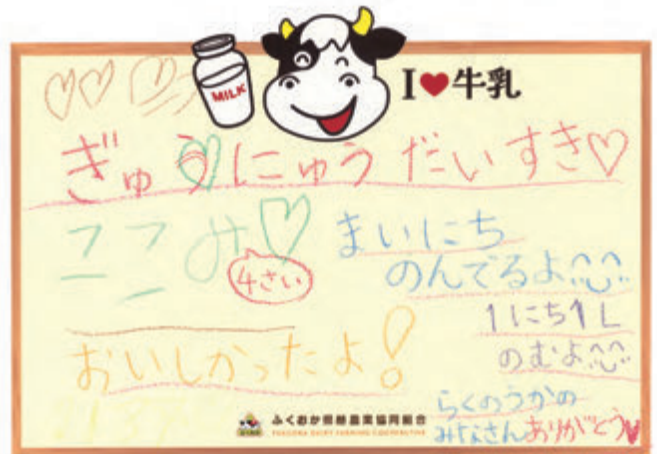 MILK
I♥牛乳
ぎゅうにゅう だいすき♡
ここみ♡
4さい
まいにち
のんでるよ
1にち1L
のむよ
おいしかったよ!
らくのうかの
みなさんありがとう♥
ふくおか県酪農業協同組合
FUKUOKA DAIRY FARMING COOPERATIVE